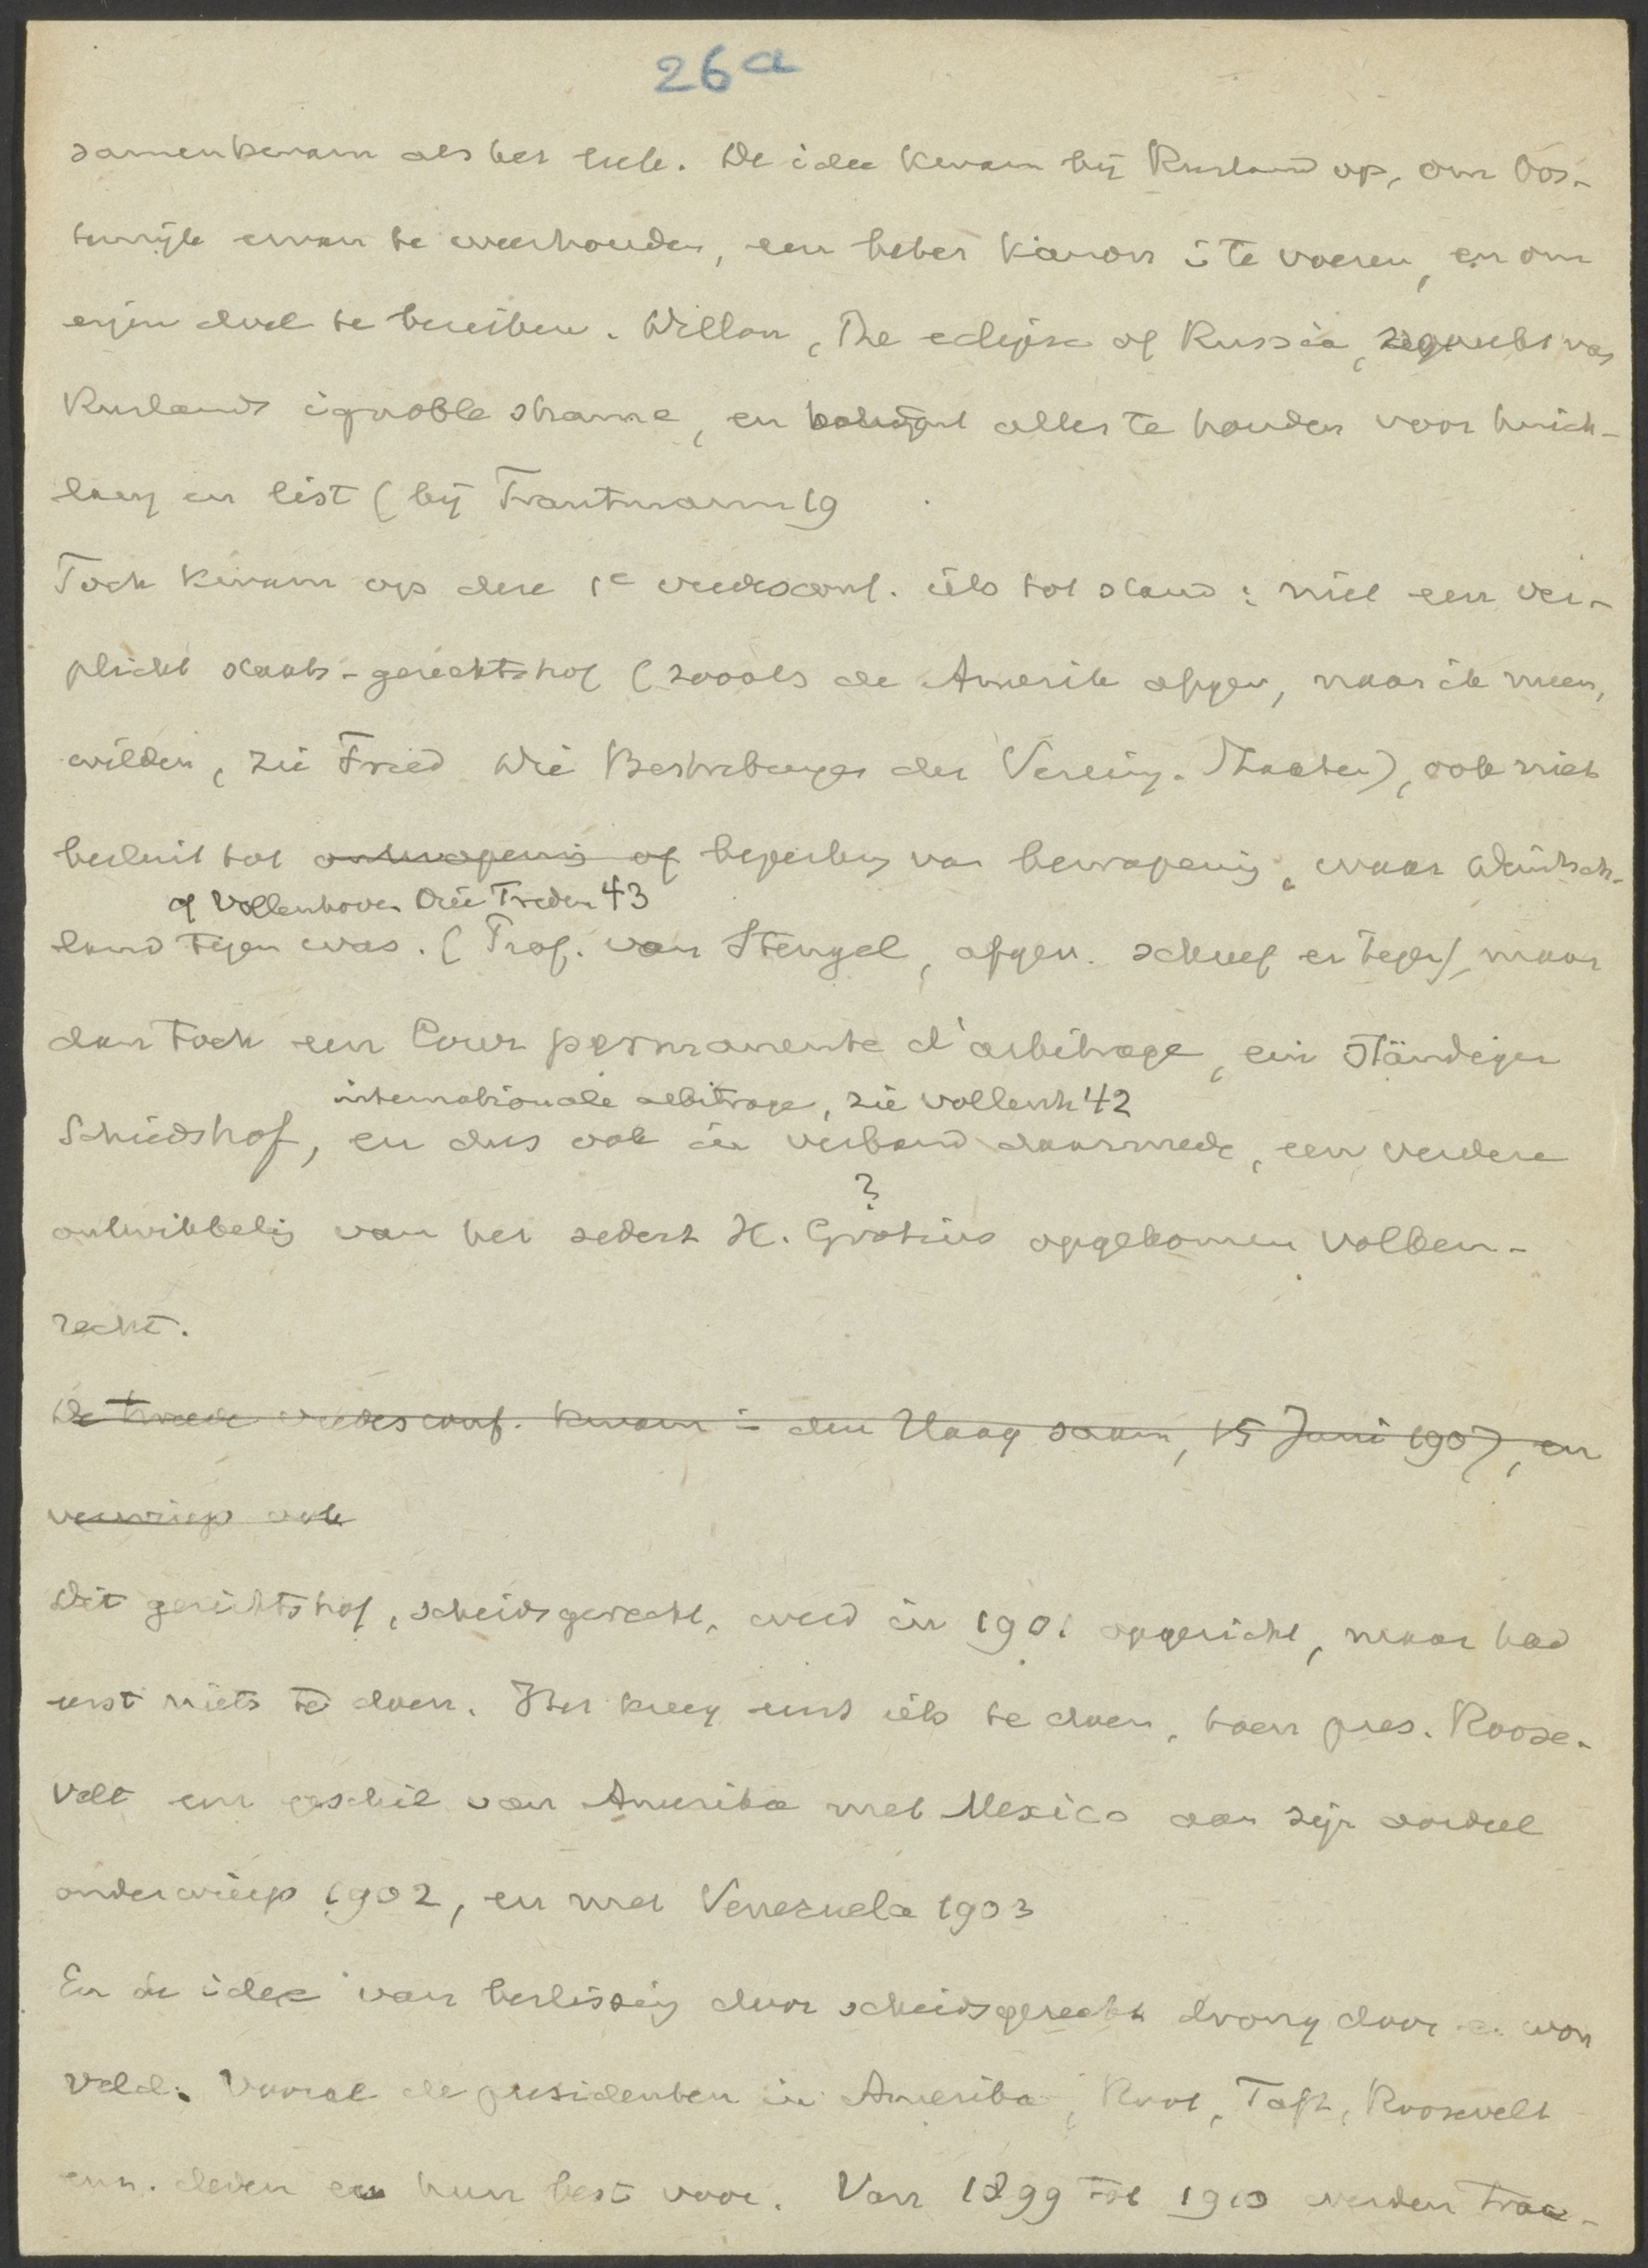 26a
samenkwam als het trele. De idee kwam bij Rusland op, om Oos-
tenrijk ervan te weerhouden, een beter kanon i te voeren, en om
eigen doel te bereiken. Dillon, The eclipse of Russia, van
Ruslands ignoble shame, en alles te houden voor huich-
lary en list (bij Trautmann 19
Toch kwam op deze 1e vredesconf. iets tot stand: niet een ver-
plicht staats-gerechtshof (zooals de Amerik afgev, naar ik meen,
wilden, zie Fried Die Bestrebungen der Verein. Staaten), ook niet
besluit tot ontwapening of beperking van bewapening, waar Duitsch-
cf Vollenhoven Drie Treden 43
land tegen was. (Prof. van Stengel, afgev. schreef er tegen), maar
dan toch een Cour permanente d'arbitrage, ein Ständiger
internationale arbitrage, zie Vollenh 42
Schiedshof, en dus ook in verband daarmede, een verdere
?
ontwikkelig van het sedert H. Grotius opgekomen volken-
recht.
De tweede vredesconf. kwam in den Haag saam, 15 Juni 1907, en
verwierp ook
Dit gerichtshof, scheidsgerecht, werd in 1901 opgericht, maar had
eerst niets te doen. Het kreeg eerst iets te doen, toen pres. Roose-
velt een geschil van Amerika met Mexico aan zijn oordeel
onderwierp 1902, en met Venezuela 1903
En de idee van beslissing door scheidsgerecht drong door e. won
veld. Vooral de presidenten in Amerika, Root, Taft, Roosevelt
enz. deden er hun best voor. Van 1899 tot 1910 werden trac-